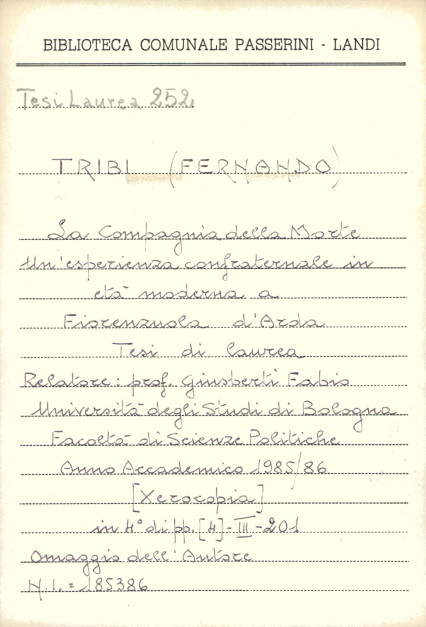 BIBLIOTECA COMUNALE PASSERINI - LANDI
Tesi Laurea 252
TRIBI (FERNANDO)
La Compagnia della Morte
Un'esperienza confraternale in
età moderna a
Fiorenzuola d'Arda
Tesi di laurea
Relatore: prof. Giusberti Fabio
Università degli Studi di Bologna
Facoltà di Scienze Politiche
Anno Accademico 1985/86
[Xerocopia]
in 4° di pp. [4]-III-201
Omaggio dell'Autore
N.I. = 185386